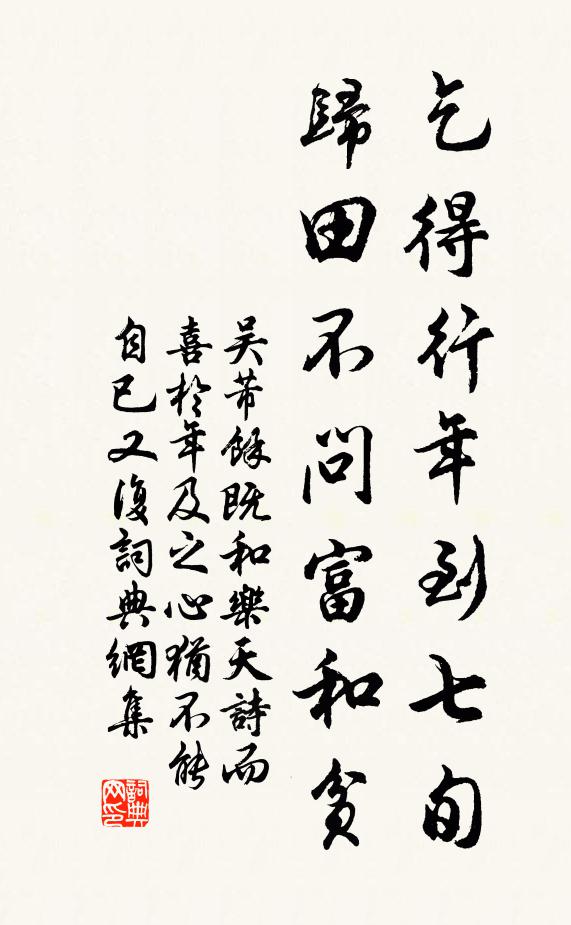 乞得行年到七旬
歸田不問富和貧
吴芾餘既和樂天詩而
喜於年及之心猶不能
自已又復詞典網集
詞典
网印